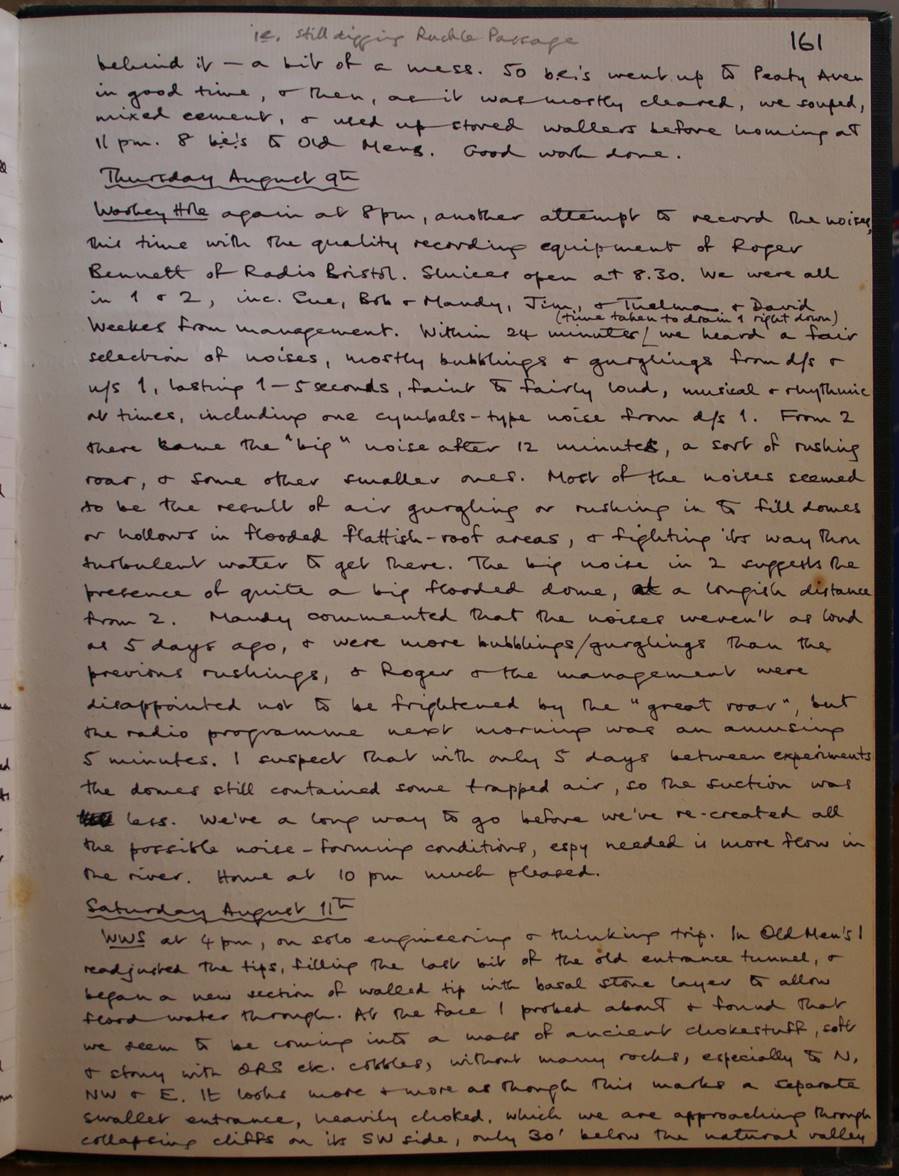 ie. still digging Ruckle Passage
161
behind it — a bit of a mess. So be's went up to Peaty Aven
in good time, & then, as it was mostly cleared, we souped,
mixed cement, & used up stored wallers before homing at
11 pm. 8 be's to Old Mens. Good work done.
Thursday August 9th
Wookey Hole again at 8pm, another attempt to record the noises,
this time with the quality recording equipment of Roger
Bennett of Radio Bristol. Sluices open at 8.30. We were all
in 1 & 2, inc. Sue, Bob & Mandy, Jim, & Thelma & David
(time taken to drain 1 right down)
Weekes from management. Within 24 minutes/ we heard a fair
selection of noises, mostly bubblings & gurglings from d/s &
u/s 1, lasting 1–5 seconds, faint to fairly loud, musical & rhythmic
at times, including one cymbals-type noise from d/s 1. From 2
there came the "big" noise after 12 minutes, a sort of rushing
roar, & some other smaller ones. Most of the noises seemed
to be the result of air gurgling or rushing in to fill domes
or hollows in flooded flattish-roof areas, & fighting its way thru
turbulent water to get there. The big noise in 2 suggests the
presence of quite a big flooded dome, at a longish distance
from 2. Mandy commented that the noises weren't as loud
as 5 days ago, & were more bubblings/gurglings than the
previous rushings, & Roger & the management were
disappointed not to be frightened by the "great roar", but
the radio programme next morning was an amusing
5 minutes. I suspect that with only 5 days between experiments
the domes still contained some trapped air, so the suction was
less. We've a long way to go before we've re-created all
the possible noise-forming conditions, espy needed is more flow in
the river. Home at 10 pm much pleased.
Saturday August 11th
WWS at 4pm, on solo engineering & thinking trip. In Old Men's I
readjusted the tips, filling the last bit of the old entrance tunnel, &
began a new section of walled tip with basal stone layer to allow
flood water through. At the face I probed about & found that
we seem to be coming into a mass of ancient chokestuff, soft
& stony with ORS etc. cobbles, without many rocks, especially to N,
NW & E. It looks more & more as though this marks a separate
swallet entrance, heavily choked, which we are approaching through
collapsing cliffs on its SW side, only 30' below the natural valley